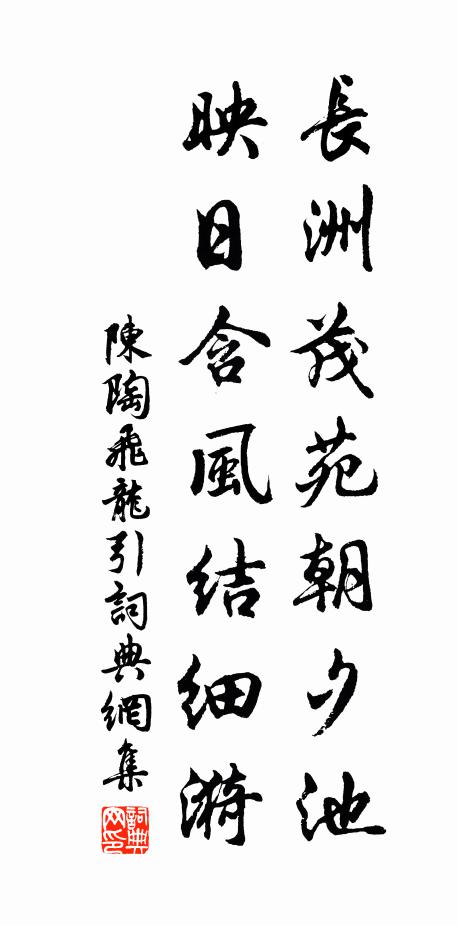 長洲茂苑朝夕池
映日含風結細漪
陳陶飛龍引詞典網集
詞典网印